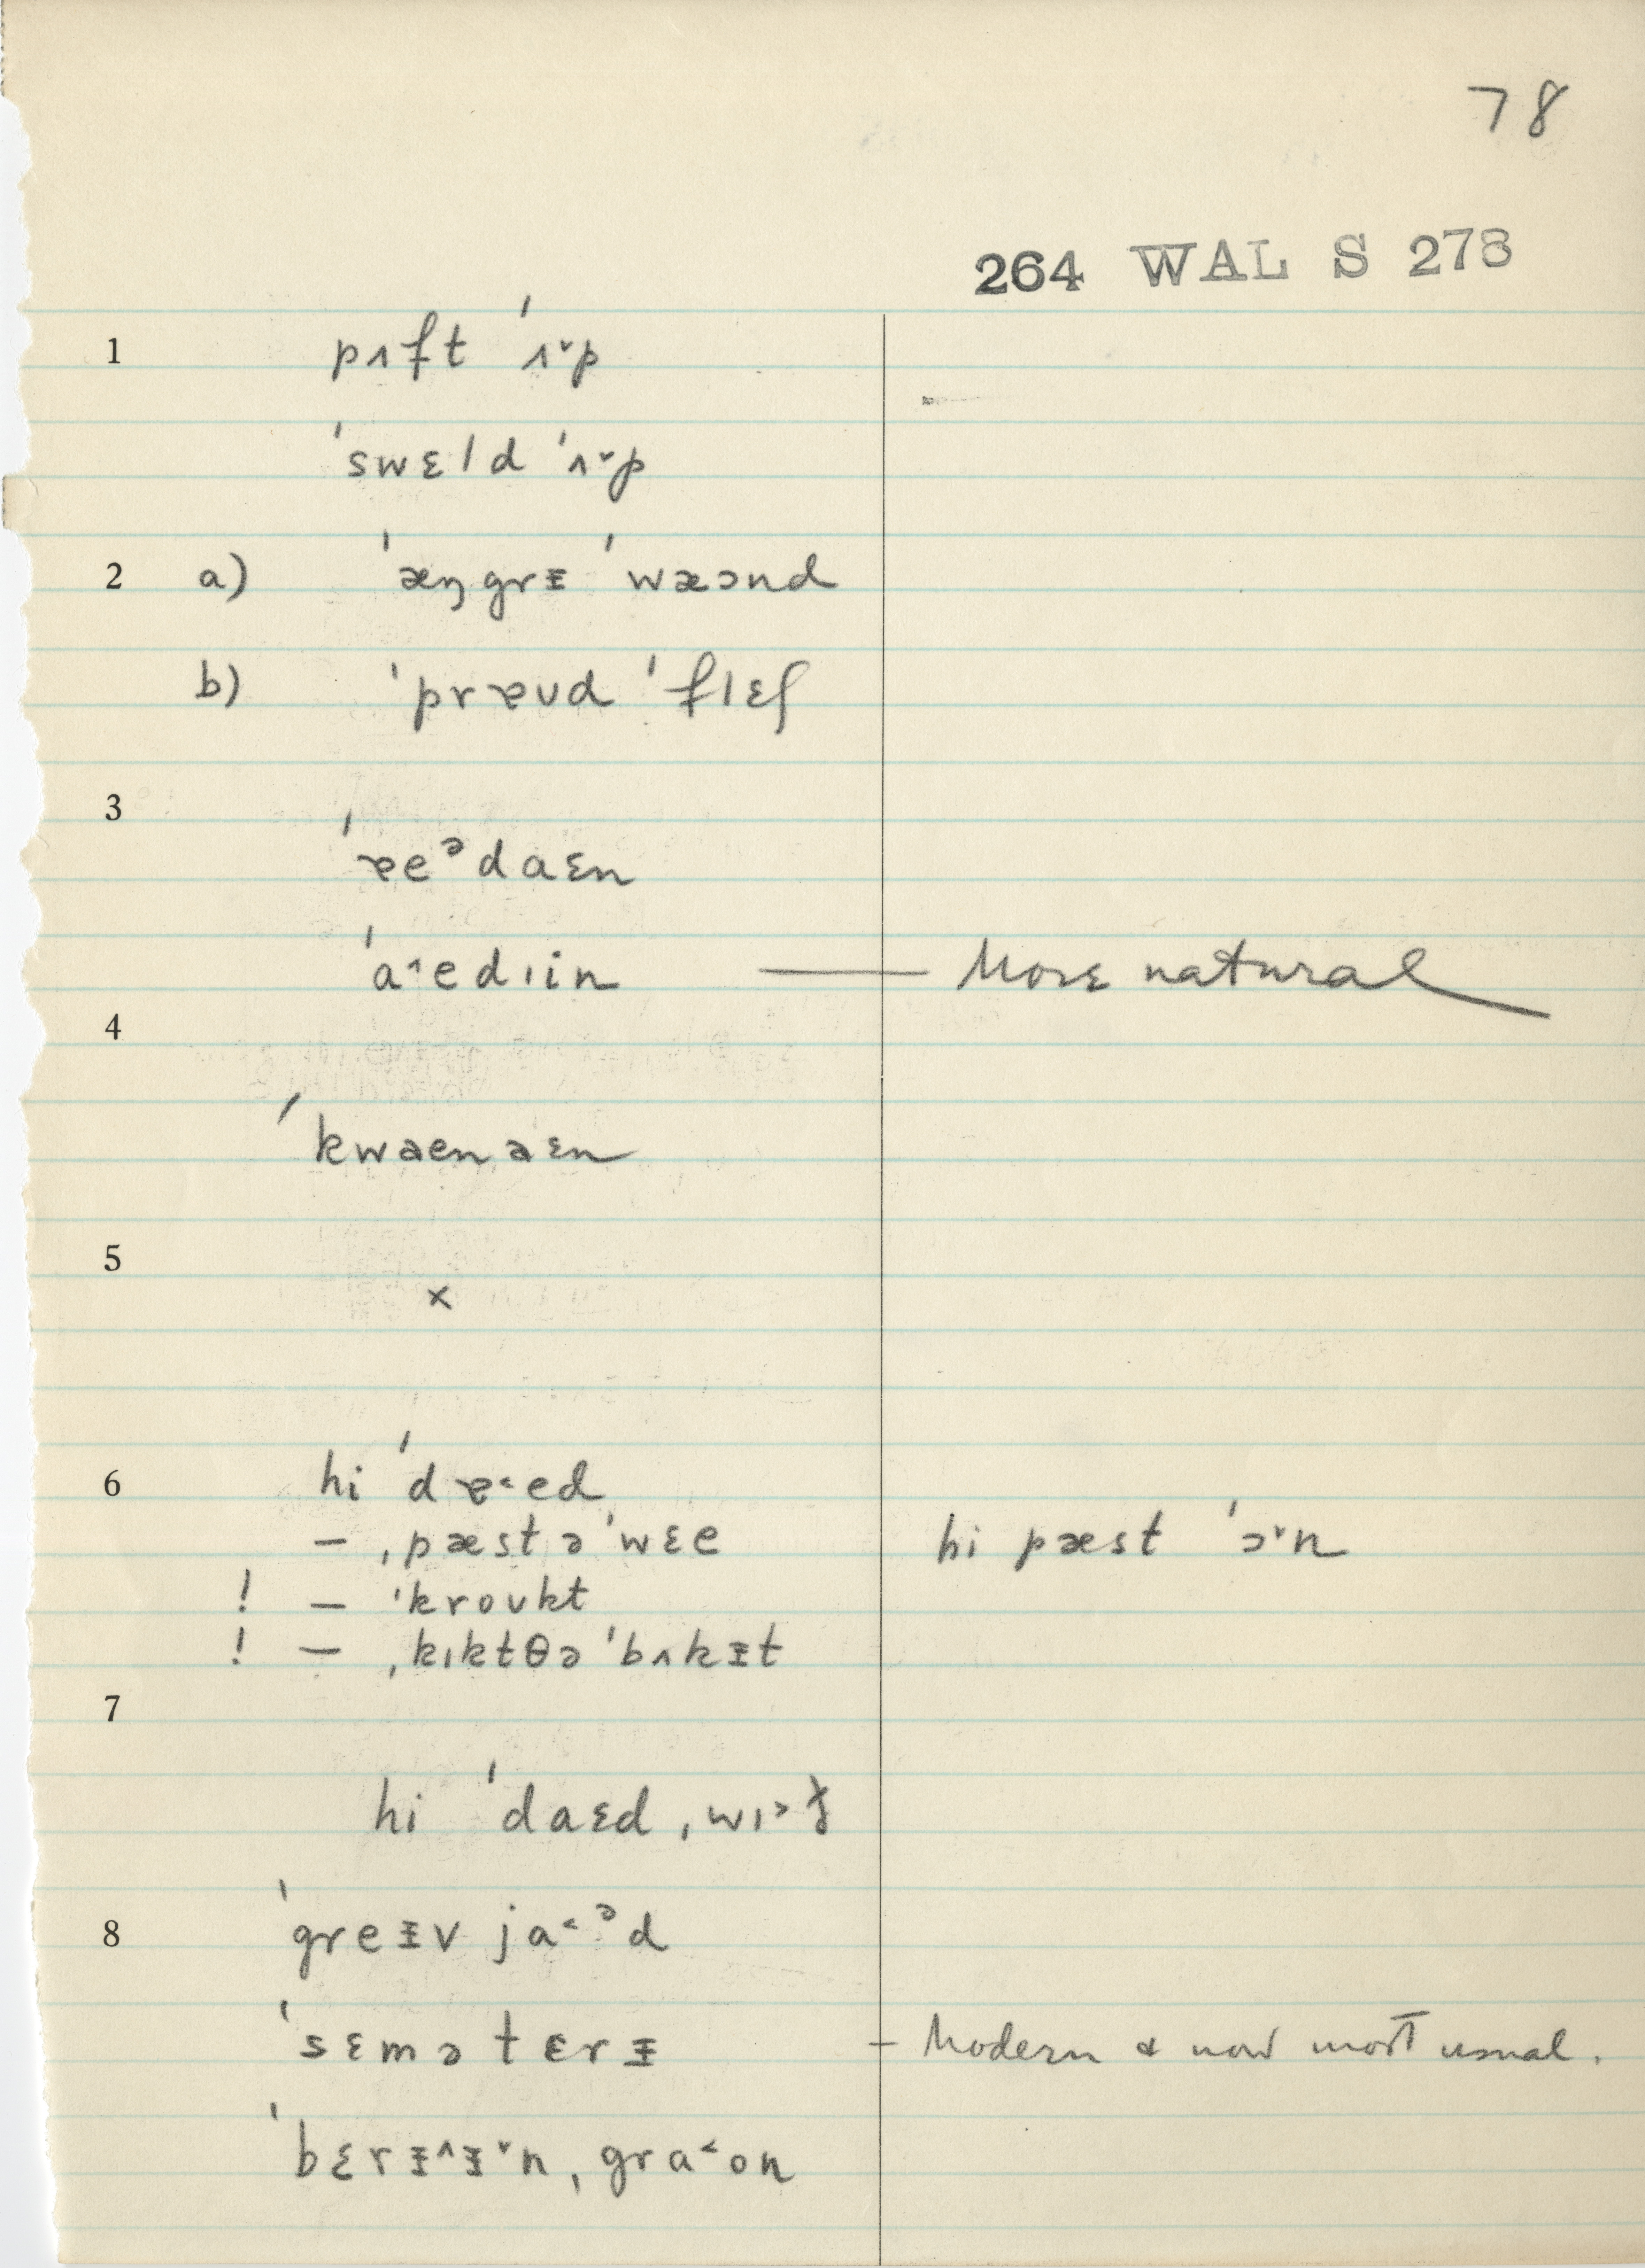 78
264 WAL S 278
1 pʌft ˈʌ˅p
ˈswɛld ˈʌ˅p
2 a) ˈæŋgrᵻ ˈwæɔnd
b) ˈprɐʊd ˈflɛʃ
3
ˈɐeᵊdaɛn
ˈa˄edɪin — More natural
4
ˈkwaenaɛn
5
×
6 hi ˈdɐ˂ed
– ˌpæst əˈwɛe hi pæst ˈɔ˅n
! – ˈkroʊkt
! – ˌkɪktθə ˈbʌkᵻt
7
hi ˈdaɛd ˌwɪ˃
8 ˈgreᵻv ja˂ᵊd
ˈsɛmətɛrᵻ – Modern & now most usual.
ˈbɛrᵻ˄ᵻ˅n ˌgra˂on